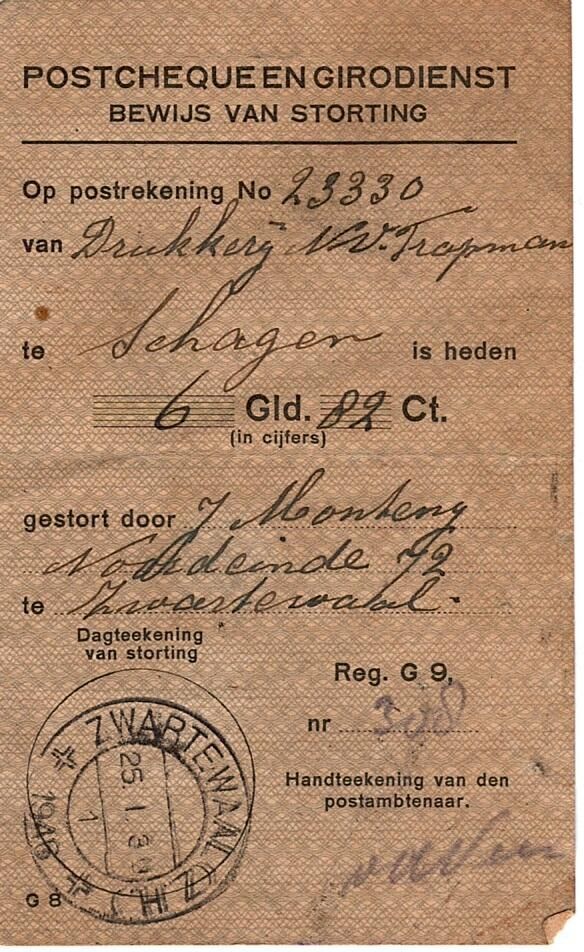 POSTCHEQUE EN GIRODIENST
BEWIJS VAN STORTING
Op postrekening No 23330
van Drukkerij N.V. Trapman
te Schagen is heden
6 Gld. 82 Ct.
(in cijfers)
gestort door J Monteny
Noordeinde 72
te Zwartewaal.
Dagteekening
van storting
Reg. G 9,
nr 308
Handteekening van den
postambtenaar.
ZWARTEWAAL (Z.H.)
25.1.
1940
G 8